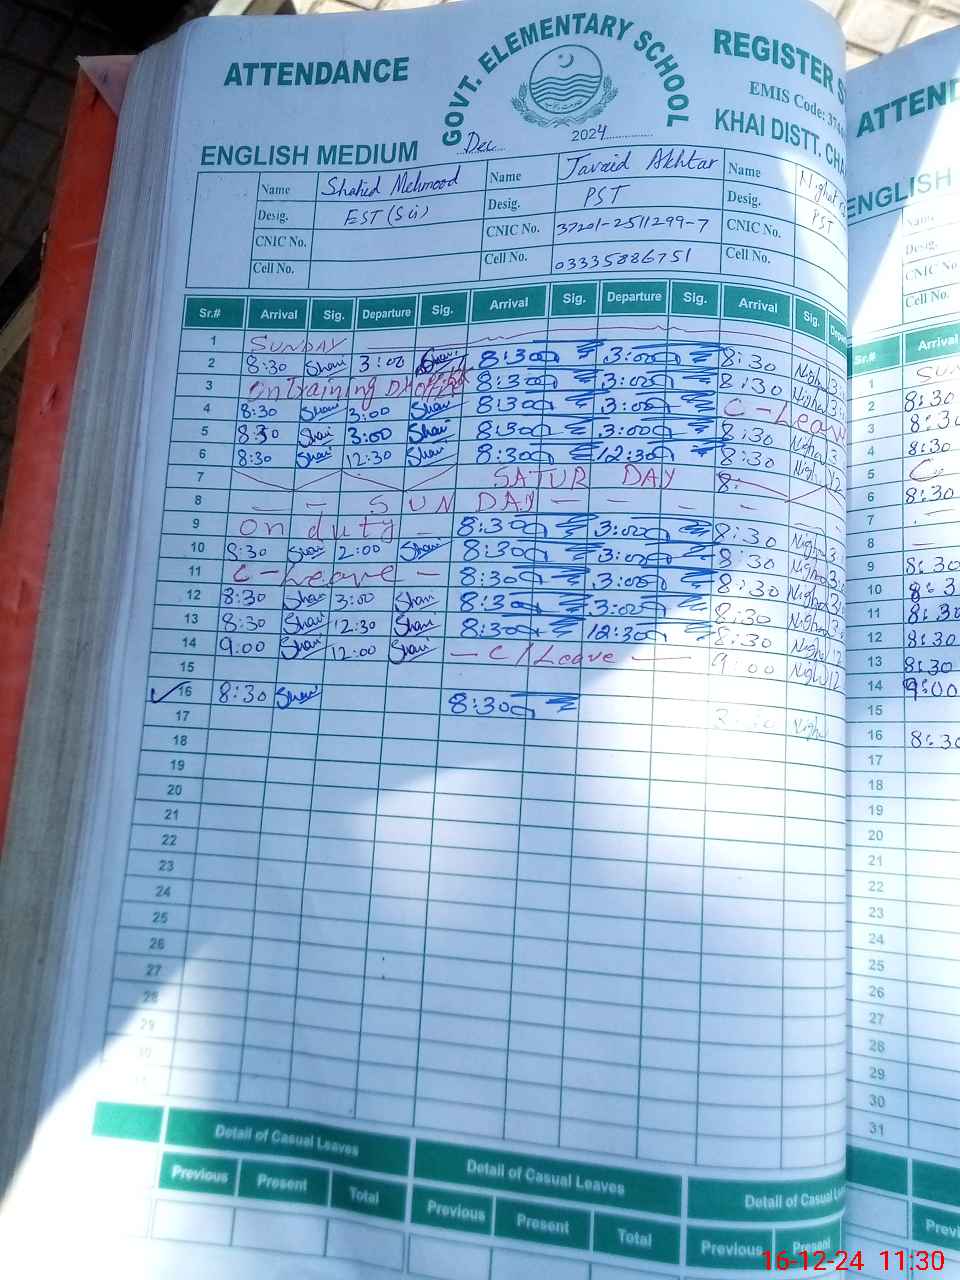 ATTENDANCE GOVT. ELEMENTARY SCHOOL REGISTER
EMIS Code:
ENGLISH MEDIUM Dec 2024 KHAI DISTT.
Name Shahid Mehmood Name Javaid Akhtar Name
Desig. EST (Sci) Desig. PST Desig. PST
CNIC No. CNIC No. 37201-2511299-7 CNIC No.
Cell No. Cell No. 03335886751 Cell No.
Sr.# Arrival Sig. Departure Sig. Arrival Sig. Departure Sig. Arrival Sig.
1 SUNDAY
2 8:30 3:00 8:30 3:00 8:30
3 On Training 8:30 3:00 8:30
4 8:30 3:00 8:30 3:00 C-Leave
5 8:30 3:00 8:30 3:00 8:30
6 8:30 12:30 8:30 12:30 8:30
7 SATURDAY 8:
8 SUNDAY
9 On duty 8:30 3:00 8:30
10 8:30 2:00 8:30 3:00 8:30
11 C-Leave 8:30 3:00 8:30
12 8:30 3:00 8:30 3:00 8:30
13 8:30 12:30 8:30 12:30 8:30
14 9:00 12:00 C/Leave 9:00
15
16 8:30 8:30
17
18
19
20
21
22
23
24
25
26
27
28
29
30
Detail of Casual Leaves Detail of Casual Leaves Detail of Casual
Previous Present Total Previous Present Total Previous Present
ATTEND
ENGLISH
Name
Desig.
CNIC No.
Cell No.
Sr.# Arrival
1 SUN
2 8:30
3 8:30
4 8:30
5 C
6 8:30
7
8
9 8:30
10 8:3
11 8:30
12 8:30
13 8:30
14 9:00
15
16 8:30
17
18
19
20
21
22
23
24
25
26
27
28
29
30
31
16-12-24 11:30